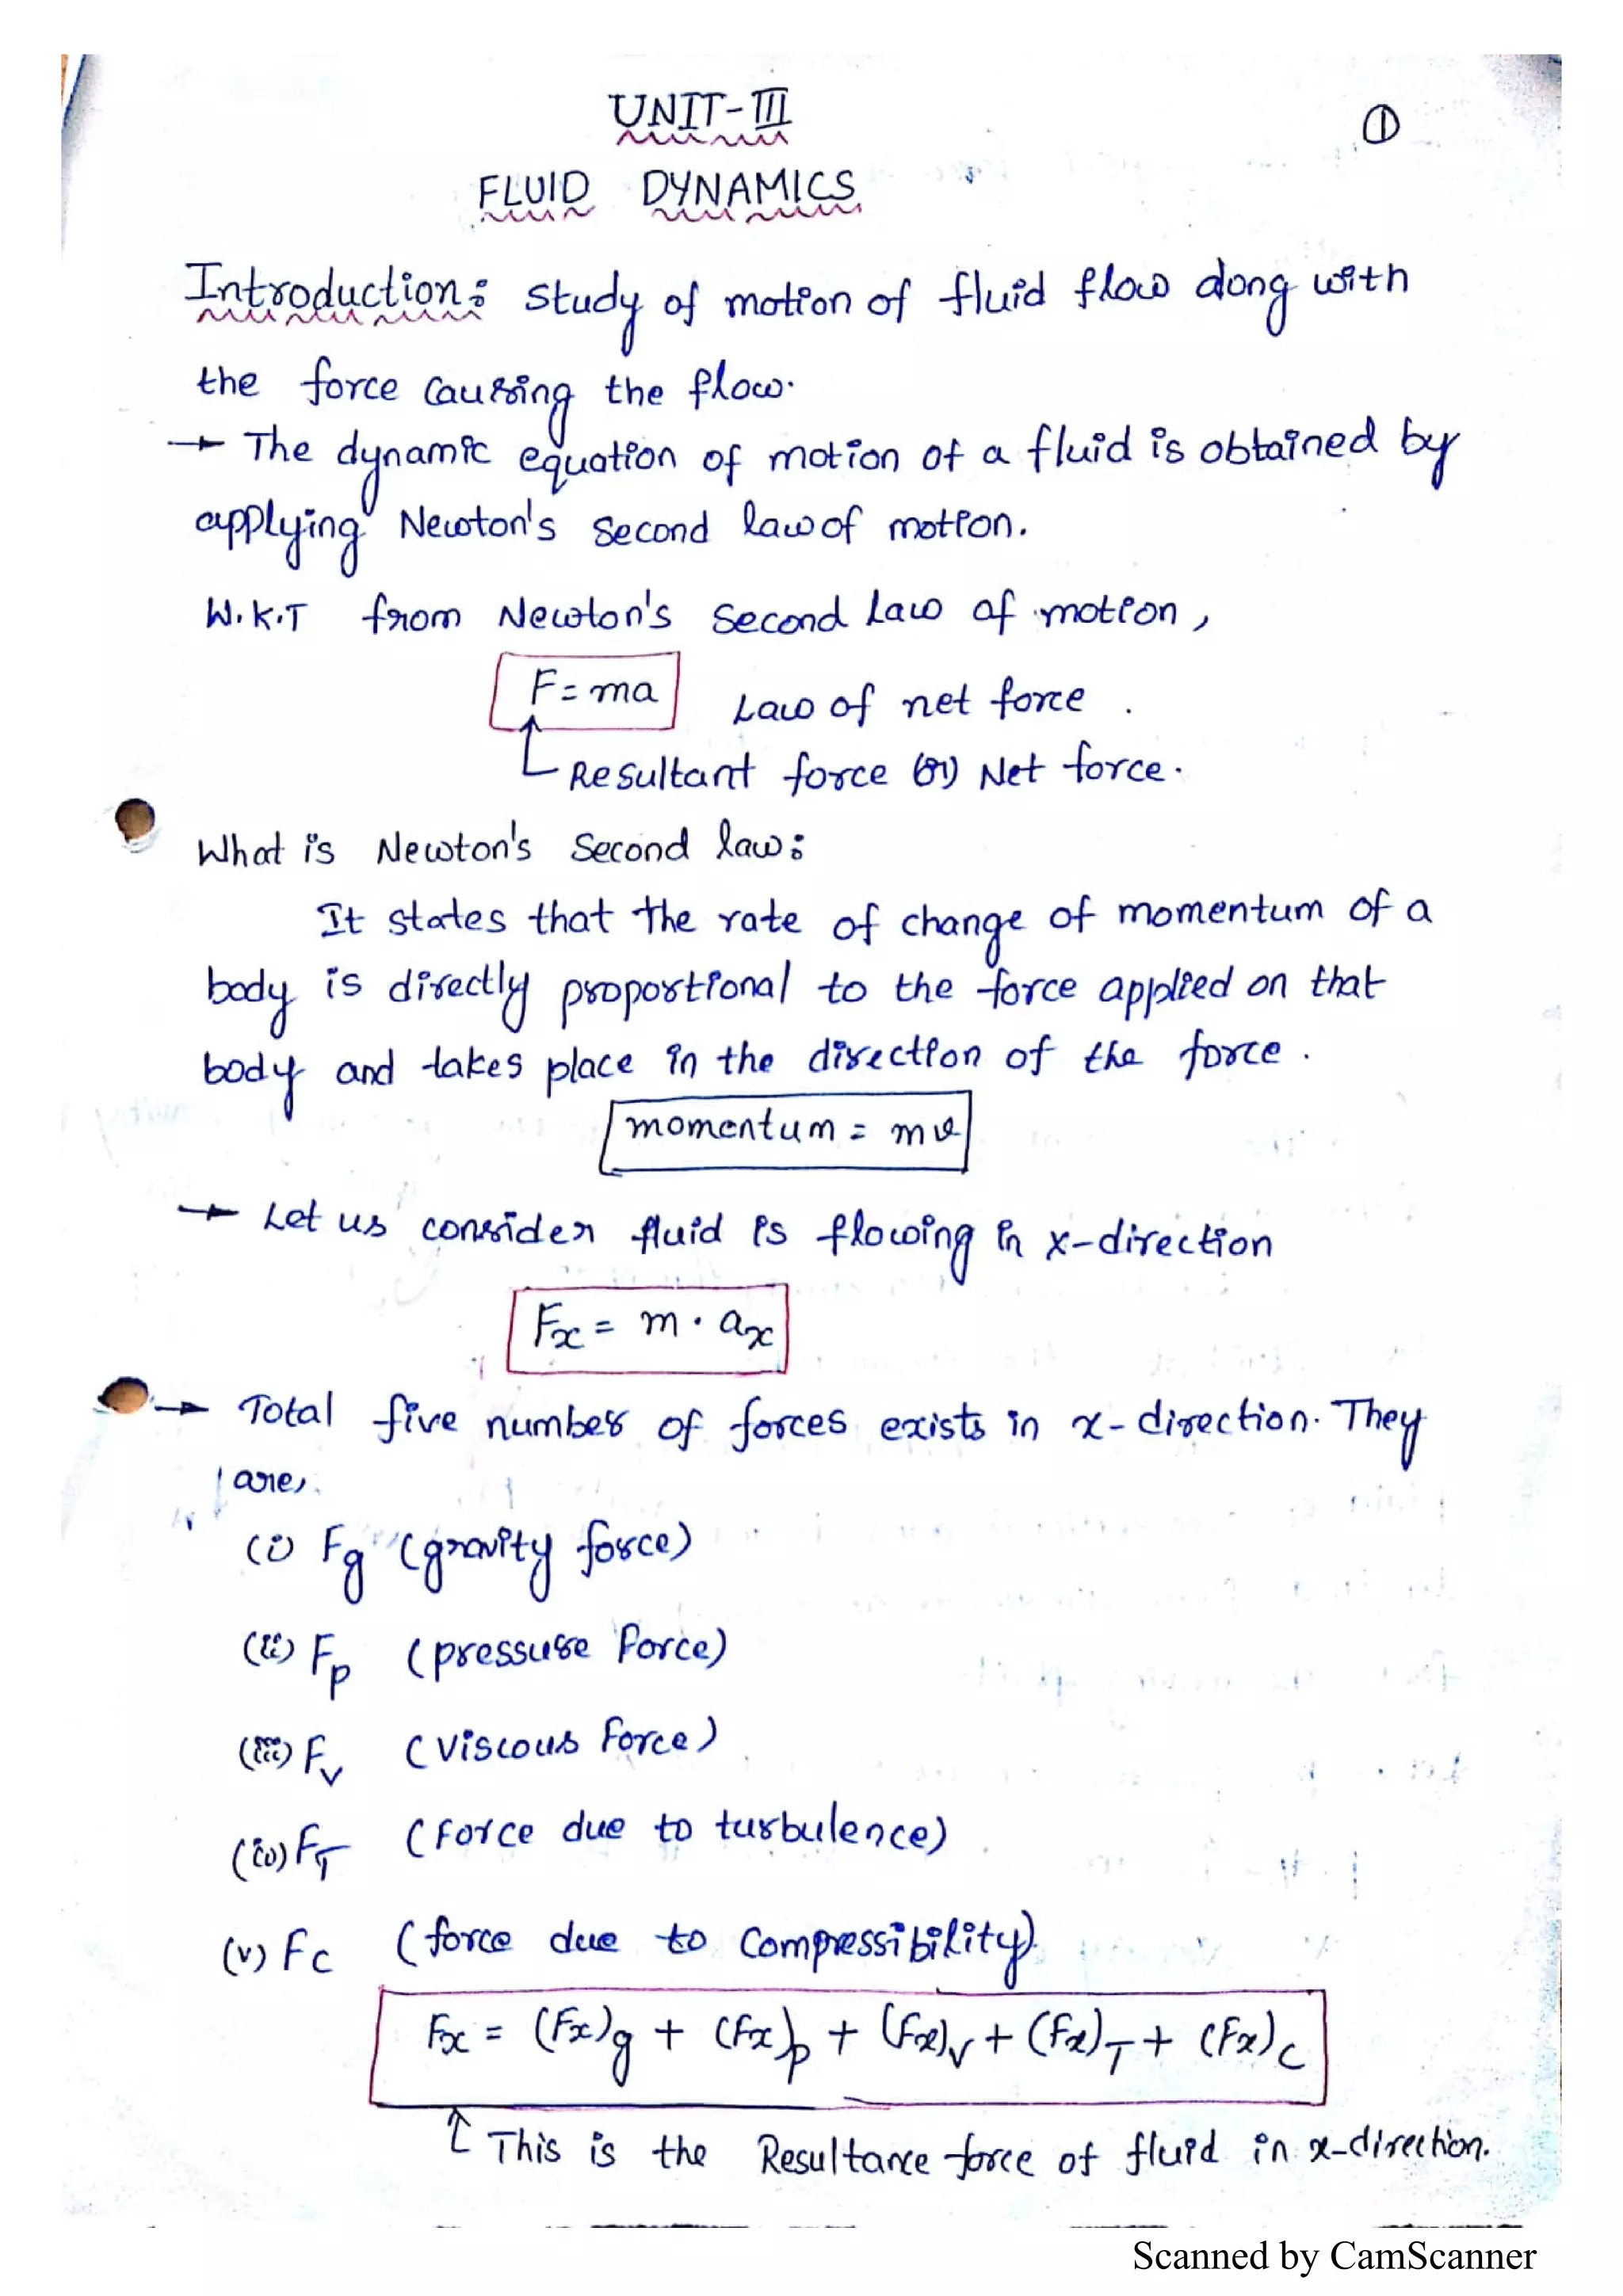 UNIT-III
①
FLUID DYNAMICS
Introduction: Study of motion of fluid flow along with
the force causing the flow.
→ The dynamic equation of motion of a fluid is obtained by
applying Newton's second law of motion.
W.K.T from Newton's second law of motion,
F = ma Law of net force.
Resultant force (or) Net force.
What is Newton's second law:
It states that the rate of change of momentum of a
body is directly proportional to the force applied on that
body and takes place in the direction of the force.
momentum = mv
→ Let us consider fluid is flowing in x-direction
Fx = m · ax
→ Total five number of forces exists in x-direction. They
are,
(i) Fg (gravity force)
(ii) Fp (pressure force)
(iii) Fv (viscous force)
(iv) FT (Force due to turbulence)
(v) Fc (force due to compressibility)
Fx = (Fx)g + (Fx)p + (Fx)v + (Fx)T + (Fx)c
This is the Resultance force of fluid in x-direction.
Scanned by CamScanner